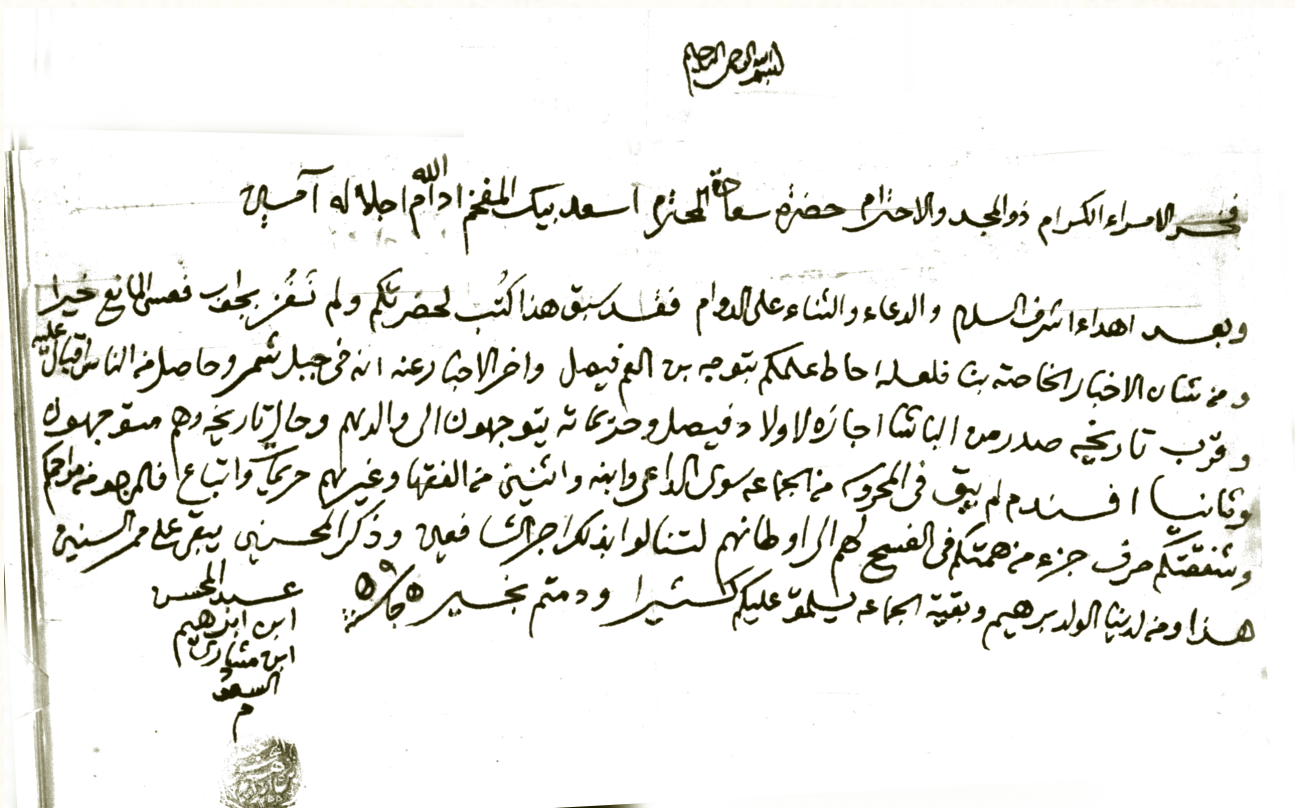 بسم الله الرحمن الرحيم
فخر الامراء الكرام ذو المجد والاحترام حضرة سعادة المحترم اسعد بيك المفخم ادام الله اجلاله آمين
وبعد اهداء اشرف السلام والدعاء والثناء على الدوام فقد سبق هذا كُتُب لحضرتكم ولم نَفُز بجواب فعسى المانع خيرا
ومن شان الاخبار الخاصته بنا فلعله احاط علمكم بتوجه بن العم فيصل واخر الاخبار عنه انه في جبل شمر وحاصل من الناس اقبال عليه
وقرب تاريخه صدر من الباشا اجازه لاولاد فيصل وحريماته يتوجهون الى والدهم وحال تاريخه وهم متوجهون
وثانيا افندم لم يبق في المحروسه من الجماعه سوى الداعي وابنه واثنين من الفقها وغيرهم حريم واتباع فالمرجو من مراحمكم
وشفقتكم صرف جزء من همتكم في الفسح لهم الى اوطانهم لتنالوا بذلك اجر الشافعين وذكر المحسنين يبقى على ممر السنين
هذا ومن لدينا الولد برهيم وبقية الجماعه يسلموا عليكم كثيرا ودمتم بخير
عبد المحسن
ابن ابرهيم
ابن مشاري
السعود
م